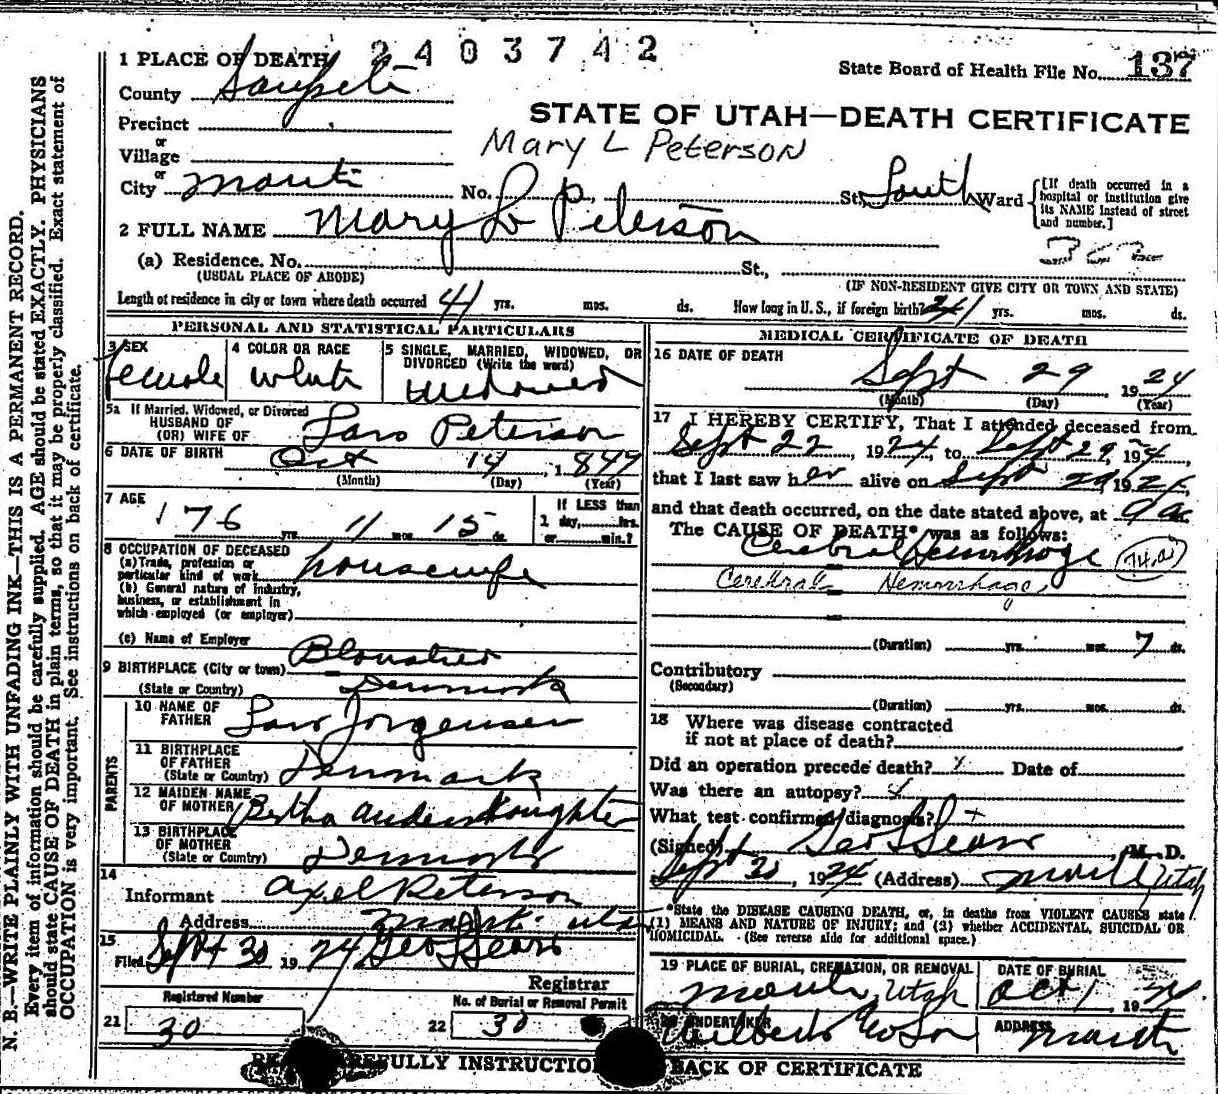 2403742
1 PLACE OF DEATH
State Board of Health File No. 137
County Sanpete
STATE OF UTAH—DEATH CERTIFICATE
Precinct
or
Village
Mary L Peterson
or
City Manti No. St. South Ward
[If death occurred in a hospital or institution give its NAME instead of street and number.]
2 FULL NAME Mary L Peterson
(a) Residence. No. St.,
(USUAL PLACE OF ABODE) (IF NON-RESIDENT GIVE CITY OR TOWN AND STATE)
Length of residence in city or town where death occurred 41 yrs. mos. ds. How long in U. S., if foreign birth? 41 yrs. mos. ds.
PERSONAL AND STATISTICAL PARTICULARS
3 SEX 4 COLOR OR RACE 5 SINGLE, MARRIED, WIDOWED, OR
DIVORCED (Write the word)
Female White Widowed
5a If Married, Widowed, or Divorced
HUSBAND OF
(OR) WIFE OF Lars Peterson
6 DATE OF BIRTH Oct 14 1847
(Month) (Day) (Year)
7 AGE 76 yrs. 11 mos. 15 ds.
If LESS than
1 day, hrs.
or min.?
8 OCCUPATION OF DECEASED
(a) Trade, profession or
particular kind of work Housewife
(b) General nature of industry,
business, or establishment in
which employed (or employer)
(c) Name of Employer
9 BIRTHPLACE (City or town)
(State or Country) Denmark
PARENTS
10 NAME OF
FATHER Lars Jorgensen
11 BIRTHPLACE
OF FATHER
(State or Country) Denmark
12 MAIDEN NAME
OF MOTHER Bertha
13 BIRTHPLACE
OF MOTHER
(State or Country) Denmark
14
Informant Axel Peterson
Address Manti Utah
15
Filed Sept 30 1924 Geo L Sears
Registrar
Registered Number
21 30
No. of Burial or Removal Permit
22 30
MEDICAL CERTIFICATE OF DEATH
16 DATE OF DEATH
Sept 29 1924
(Month) (Day) (Year)
17 I HEREBY CERTIFY, That I attended deceased from
Sept 22, 1924, to Sept 29, 1924,
that I last saw her alive on Sept 29, 1924,
and that death occurred, on the date stated above, at 9 a m.
The CAUSE OF DEATH* was as follows:
Cerebral Hemorrhage
Cerebral Hemorrhage
(Duration) yrs. mos. 7 ds.
Contributory
(Secondary)
(Duration) yrs. mos. ds.
18 Where was disease contracted
if not at place of death?
Did an operation precede death? Date of
Was there an autopsy?
What test confirmed diagnosis?
(Signed) Geo L Sears, M. D.
Sept 30, 1924 (Address) Manti Utah
*State the DISEASE CAUSING DEATH, or, in deaths from VIOLENT CAUSES state
(1) MEANS AND NATURE OF INJURY; and (2) whether ACCIDENTAL, SUICIDAL OR
HOMICIDAL. (See reverse side for additional space.)
19 PLACE OF BURIAL, CREMATION, OR REMOVAL DATE OF BURIAL
Manti, Utah Oct 1 1924
UNDERTAKER ADDRESS
Manti
FULLY INSTRUCTIO BACK OF CERTIFICATE
N. B.—WRITE PLAINLY WITH UNFADING INK—THIS IS A PERMANENT RECORD.
Every item of information should be carefully supplied. AGE should be stated EXACTLY. PHYSICIANS
should state CAUSE OF DEATH in plain terms, so that it may be properly classified. Exact statement of
OCCUPATION is very important. See instructions on back of certificate.